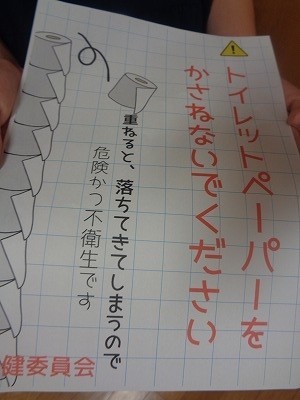 トイレットペーパーを
かさねないでください
重ねると、落ちてきてしまうので
危険かつ不衛生です
健委員会